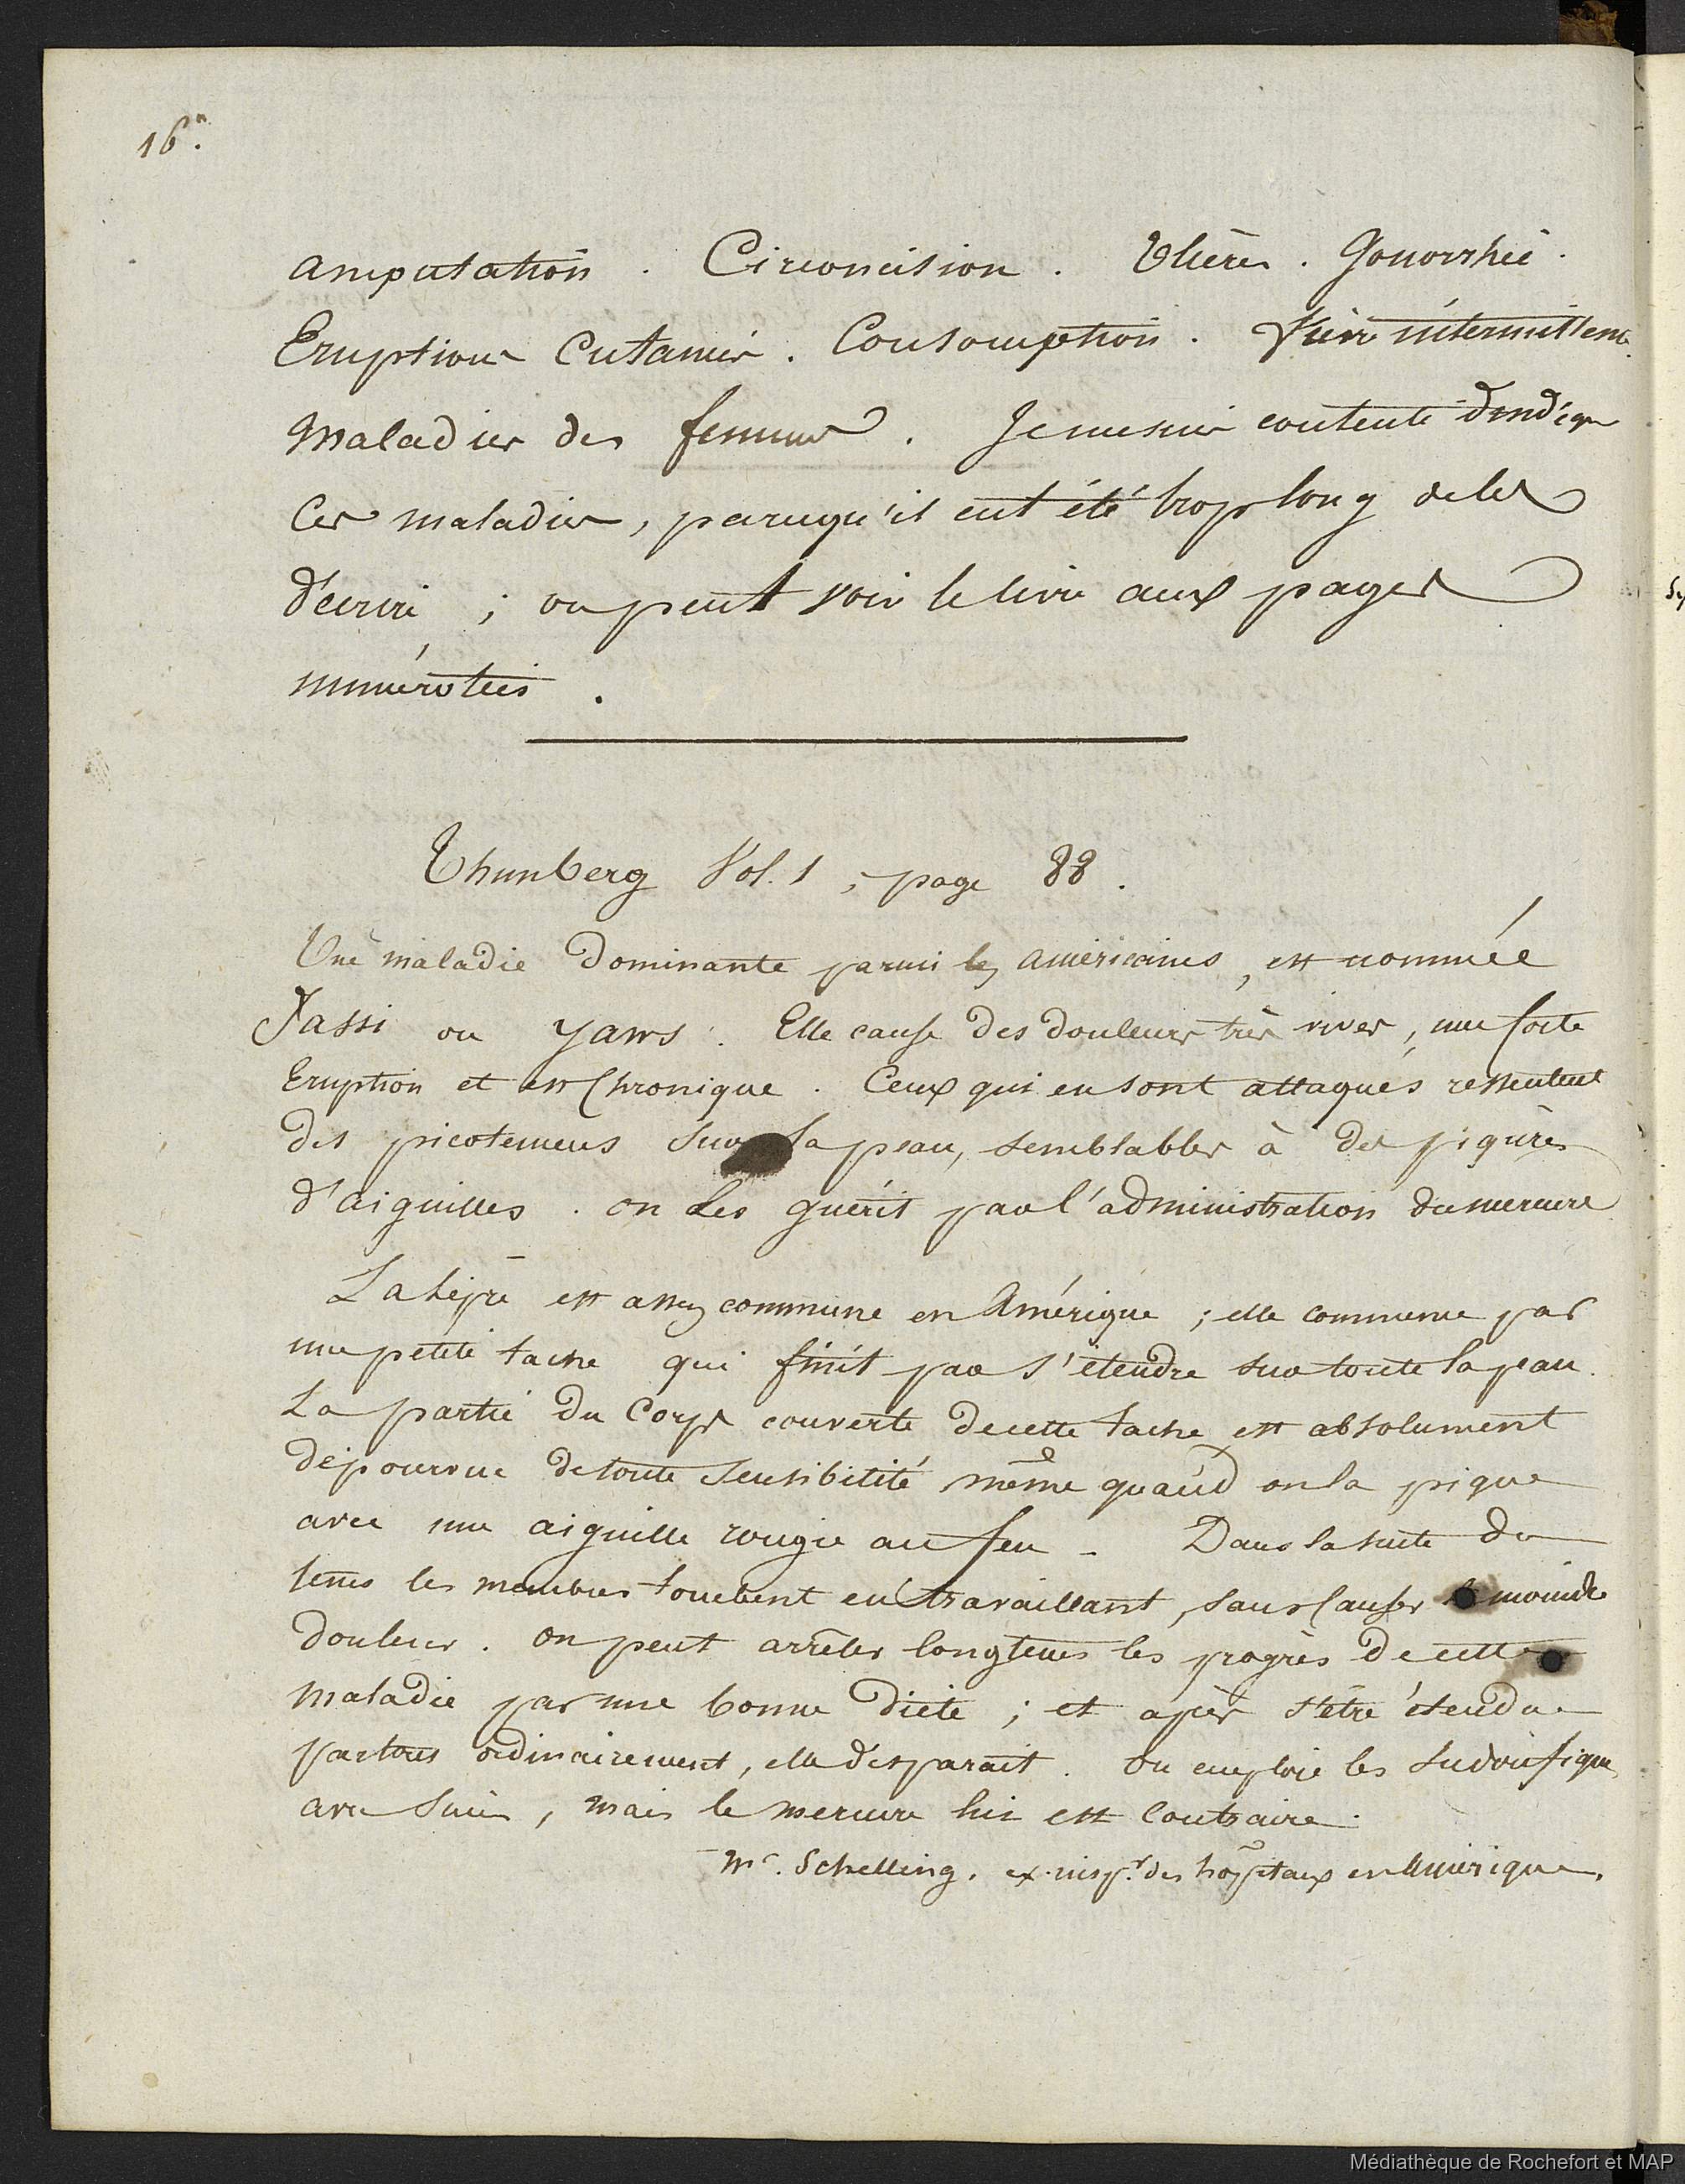 16.
amputation. Circoncision. Ulcères. Gonorrhée.
Eruptions Cutanées. Consomption. fièvre intermittente.
Maladies des femmes. Je me suis contenté d'indiq
Ces maladies, parcequ'il eut été trop long de les
décrire ; on peut voir le livre aux pages
numérotées.
Thunberg Vol. 1, page 88.
Une maladie dominante parmi les américains, est nommée
Jassi ou yaws. Elle cause des douleurs très vives, une forte
Eruption et est Chronique. Ceux qui en sont attaqués ressentent
des picotemens sur la peau, semblables à des piqûres
d'aiguilles. on les guérit par l'administration du mercure
La lèpre est assez commune en Amérique ; elle commence par
une petite tache qui finit par s'étendre sur toute la peau.
La partie du Corps couverte de cette tache est absolument
dépourvue de toute sensibilité même quand on la pique
avec une aiguille rougie au feu - Dans la suite du
tems les membres tombent en travaillant, sans causer moindre
douleur. on peut arrêter longtems les progrès de cette
maladie par une bonne diète ; et après s'être étendue
partout ordinairement, elle disparait. On emploie les sudorifiques
avec succès, mais le mercure lui est Contraire.
Mr. Schelling, ex-inspr. des hôpitaux en Amérique.
Médiathèque de Rochefort et MAP